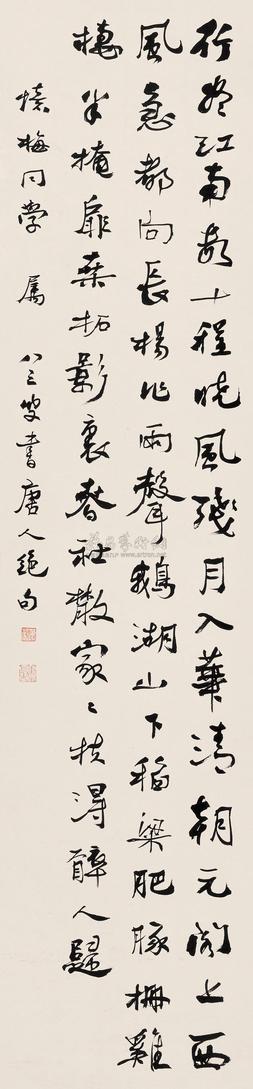 行盡江南數十程曉風殘月入華清朝元閣上西
風急都向長楊作雨聲鵝湖山下稻梁肥豚柵雞
棲半掩扉桑柘影裏春社散家〻扶得醉人歸
憶梅同學 屬 八三叟書唐人絕句